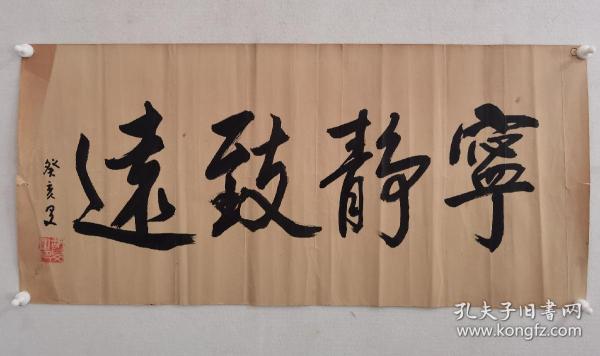 寧靜致遠
癸亥夏
孔夫子旧书网
www.kongfz.com